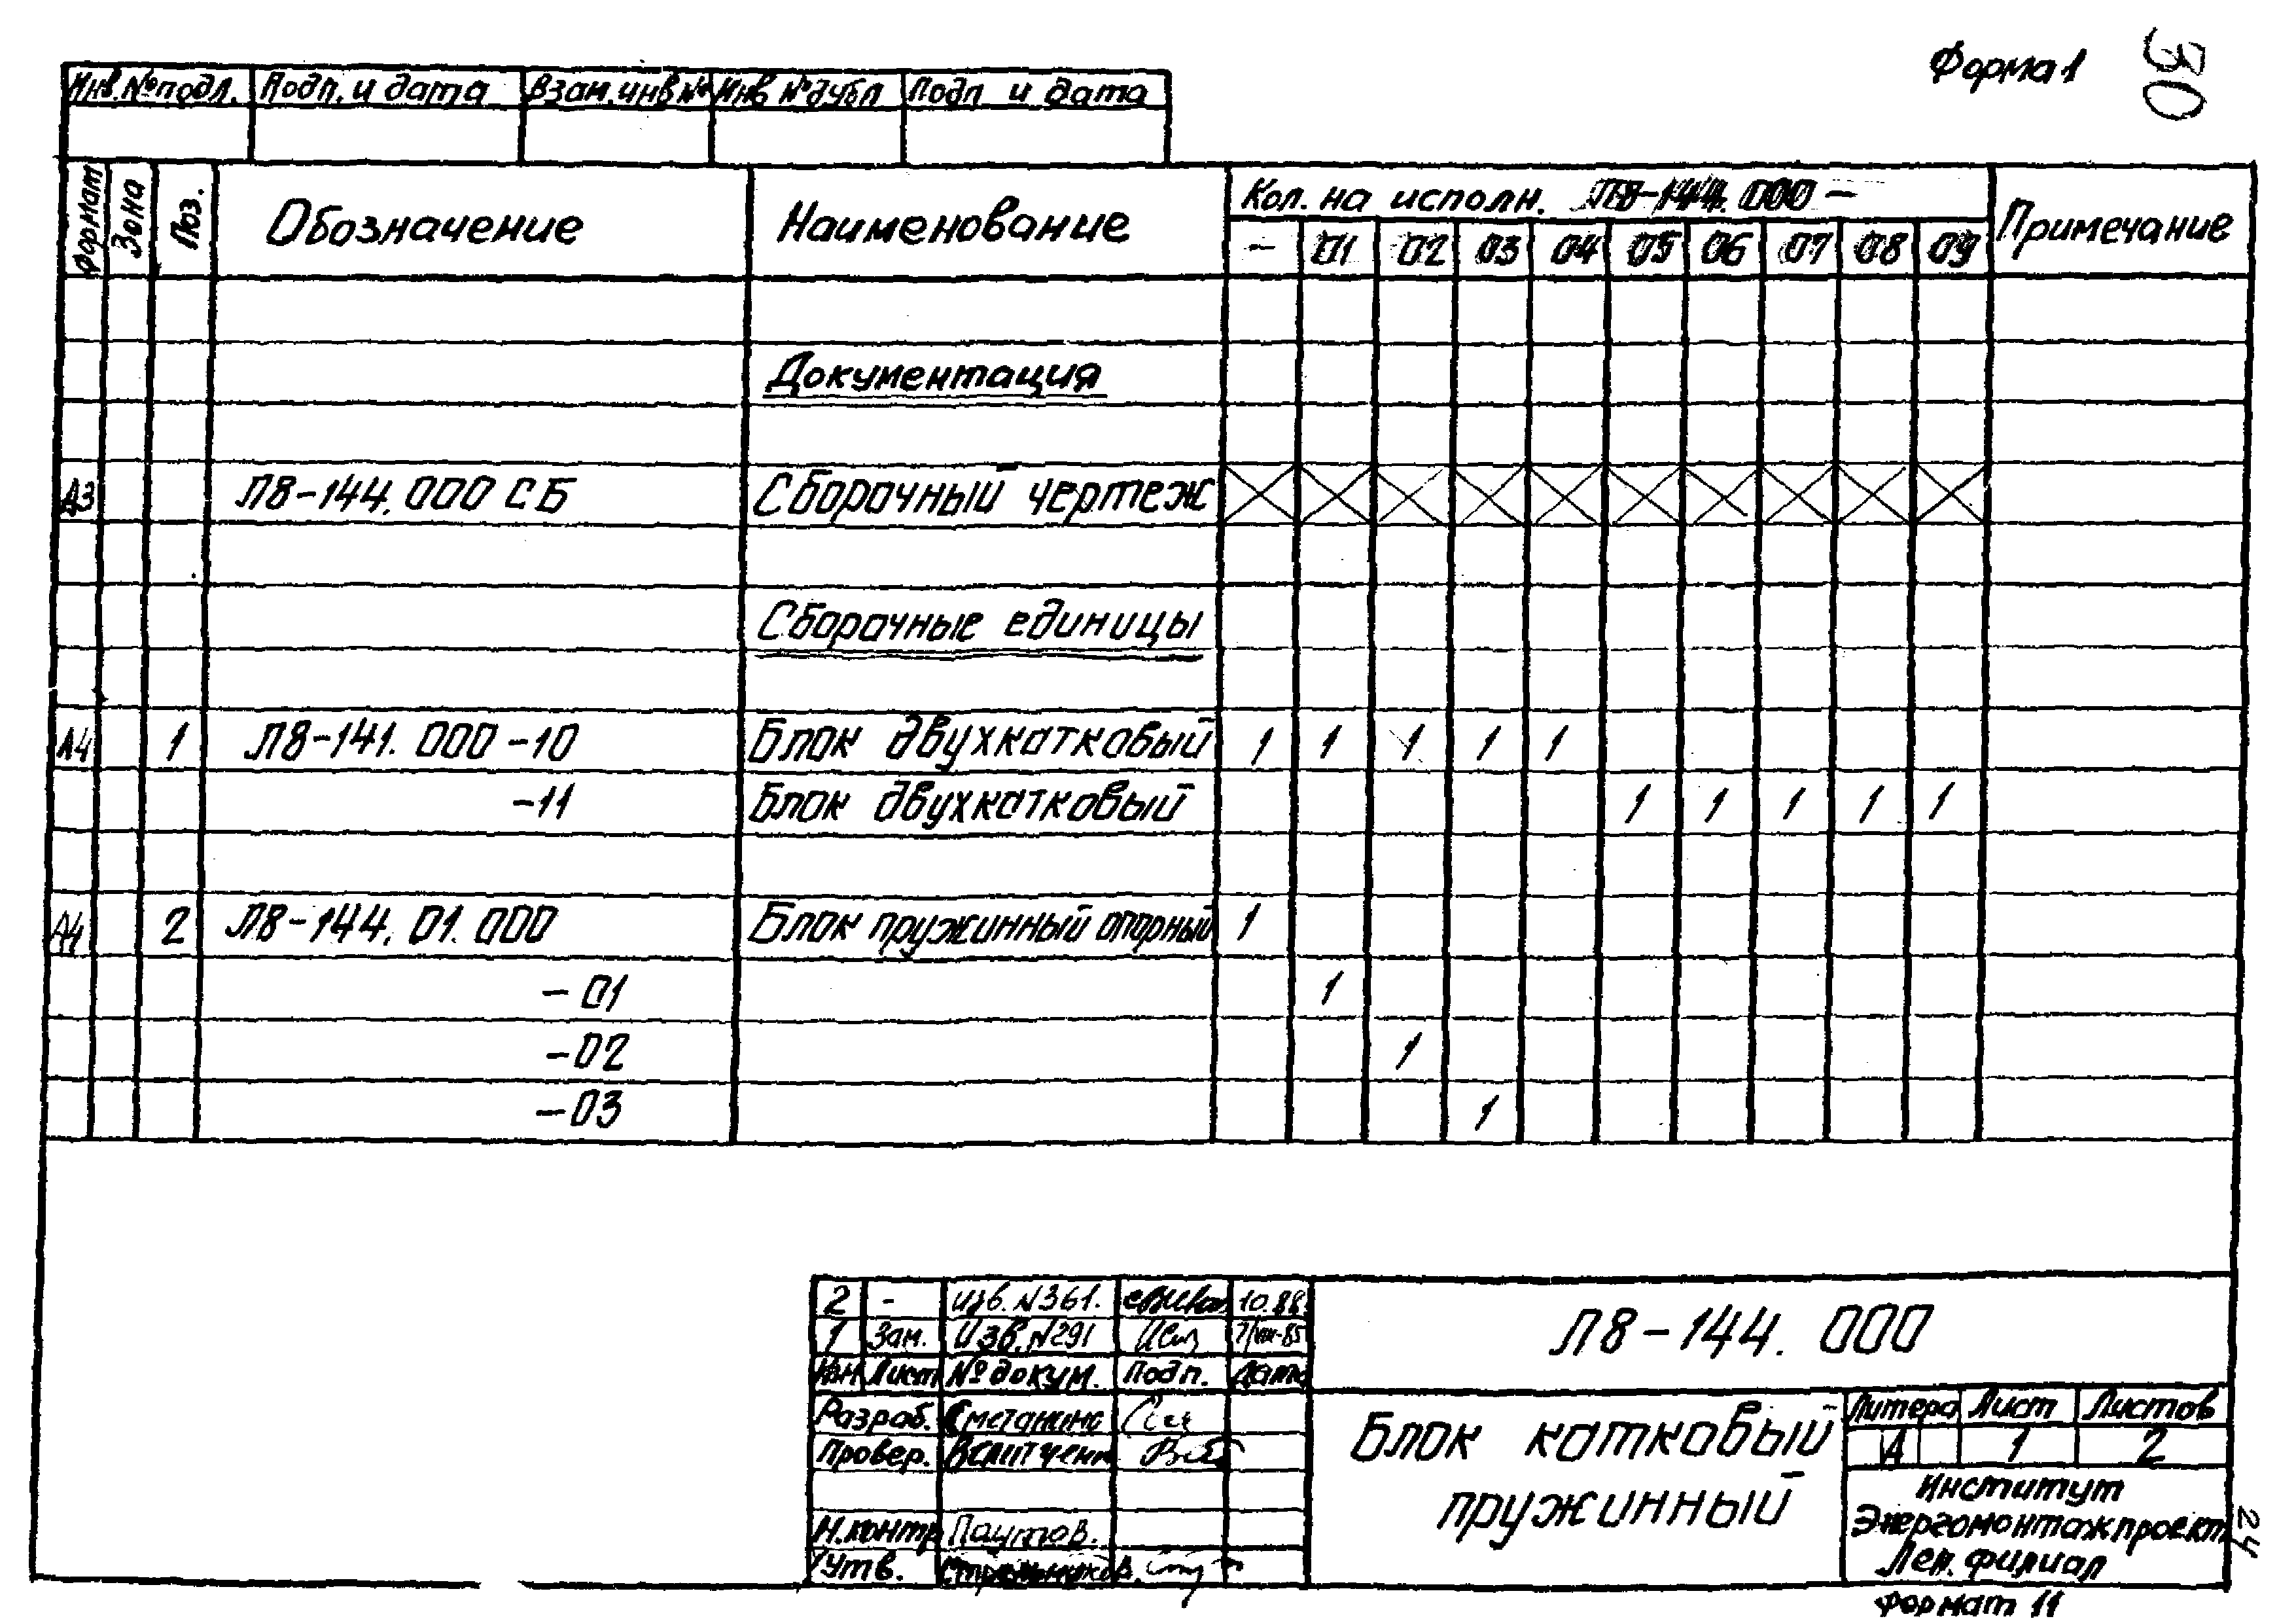 Форма 1
30
Инв. № подл. Подп. и дата Взам. инв № Инв № дубл Подп и дата
Формат Зона Поз. Обозначение Наименование Кол. на исполн. Л8-144.000 - Примечание
- 01 02 03 04 05 06 07 08 09
Документация
А3 Л8-144.000 СБ Сборочный чертеж
Сборочные единицы
А4 1 Л8-141.000-10 Блок двухкатковый 1 1 1 1 1
-11 Блок двухкатковый 1 1 1 1 1
А4 2 Л8-144.01.000 Блок пружинный опорный 1
-01 1
-02 1
-03 1
2 - изв. N361. 10.88.
1 Зам. Изв. N291
Изм Лист № докум. Подп. Дата
Л8-144.000
Разраб. Сметанина
Провер.
Н.контр Паутов.
Утв.
Блок катковый
пружинный
Литера Лист Листов
А 1 2
Институт
Энергомонтажпроект
Лен. филиал
24
Формат 11